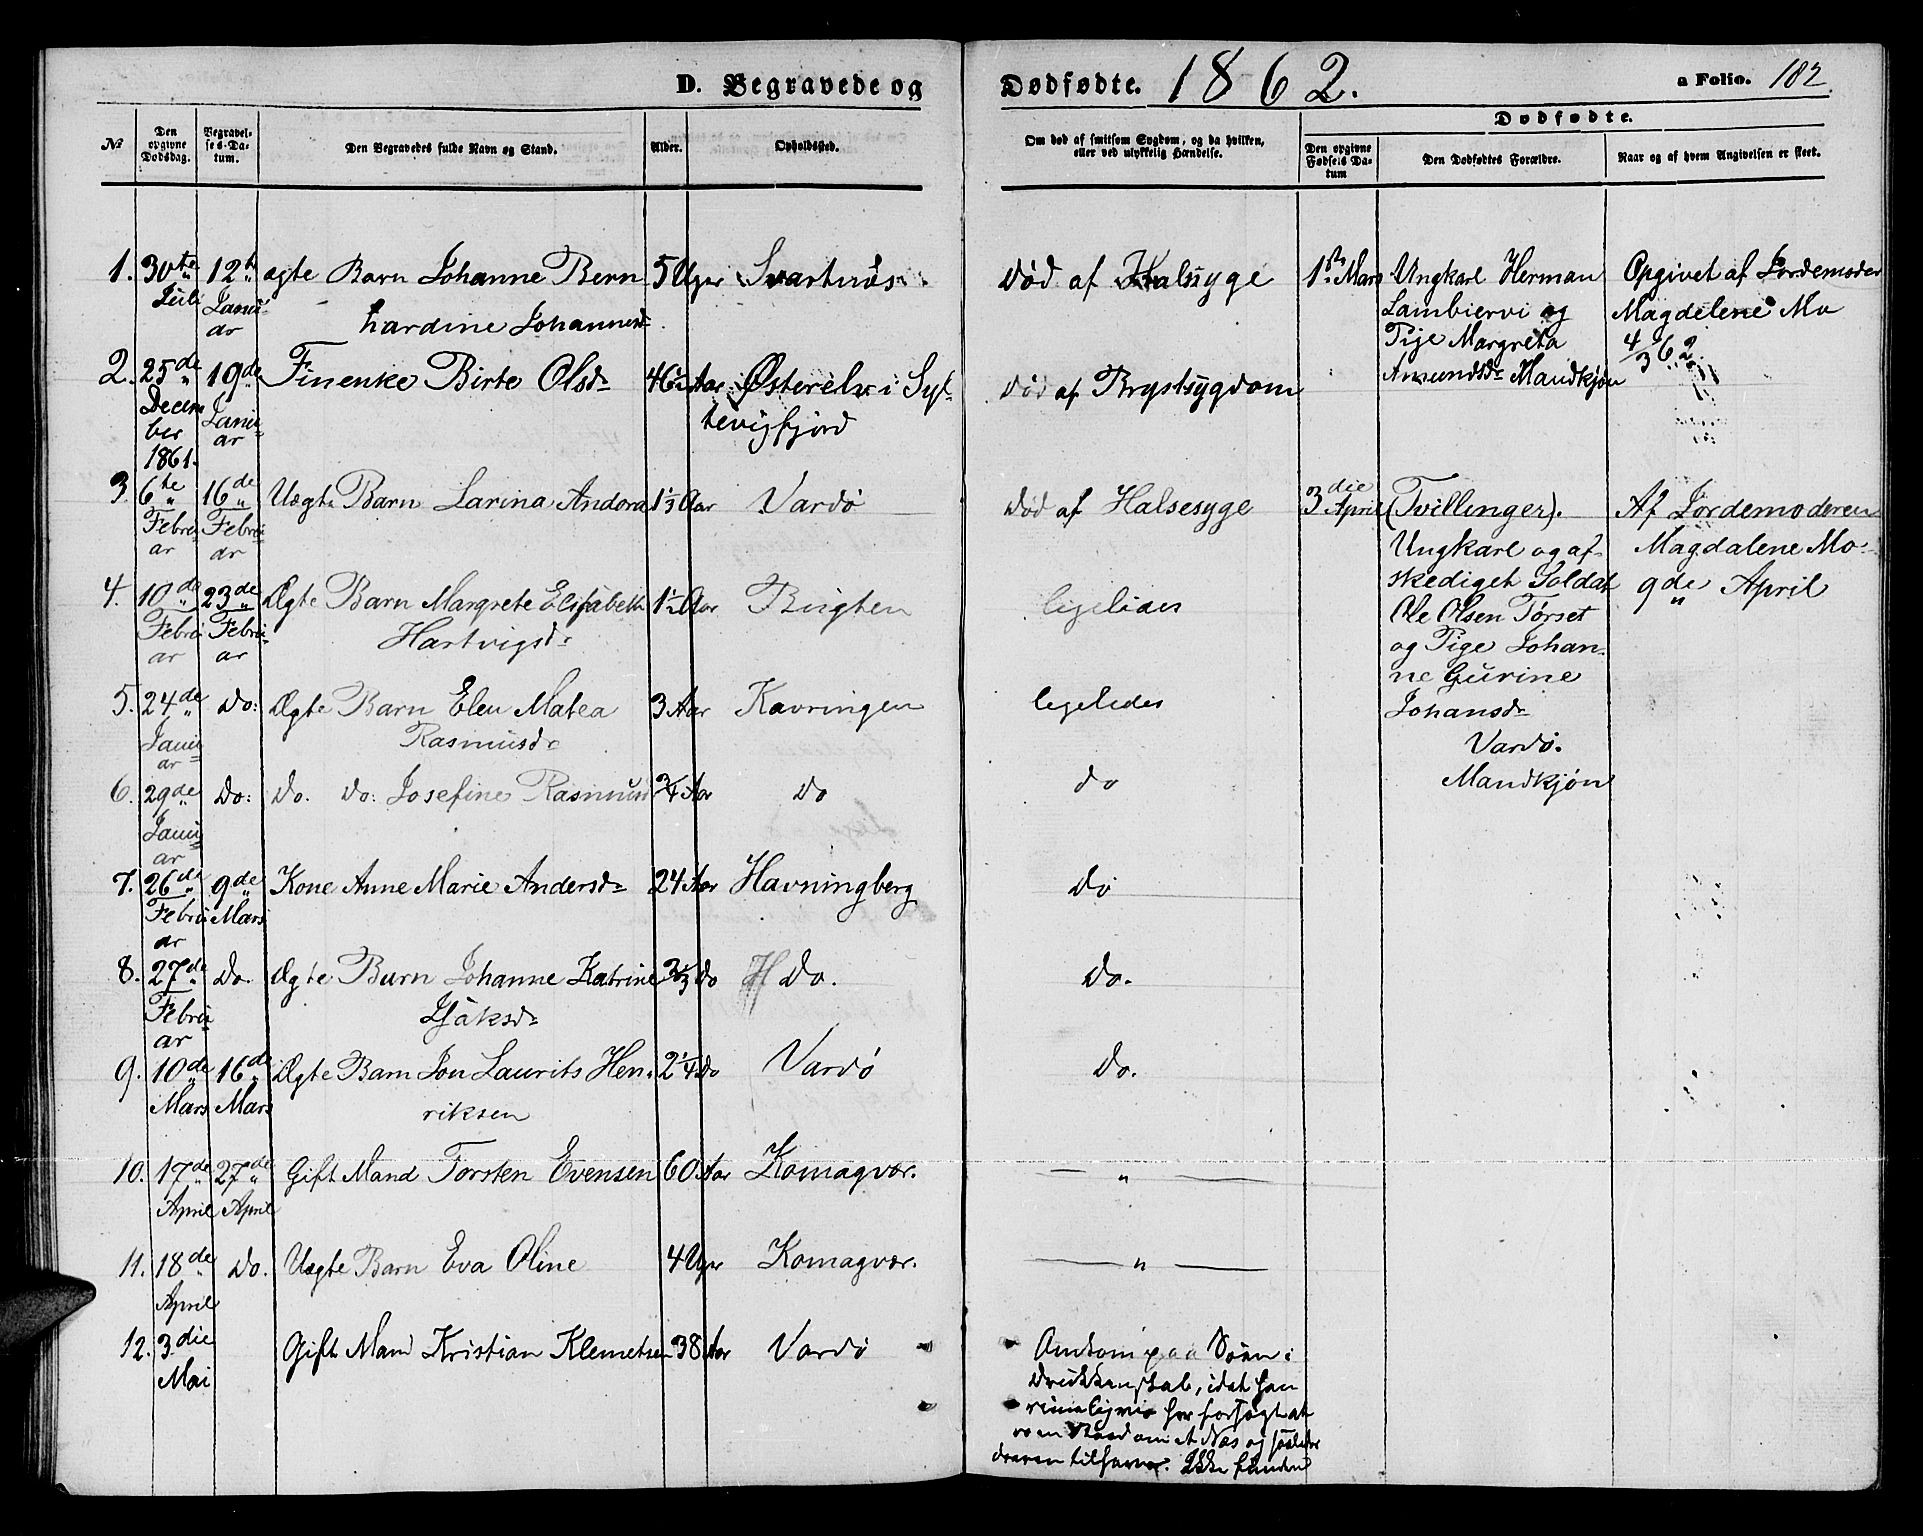 D. Begravede og Dødfødte. 1862. a Folio. 182
Dødfødte.
No
Den opgivne Dødsdag.
Begravelses-Datum.
Den Begravedes fulde Navn og Stand.
Alder.
Opholdssted.
Om død af smitsom Sygdom, og da hvilken, eller ved ulykkelig Hændelse.
Den opgivne Fødsels Datum
Den Dødfødtes Forældre.
Naar og af hvem Angivelsen er skeet.
1. 30te Juli 12te Januar ægte Barn Johanne Bernhardine Johannesdr 5 Uger Svartnæs. død af Halsyge
2. 25de December 1861. 19de Januar Finenke Birte Olsdr 46½ Aar Østerelv i Syltevigfjord død af Brystsygdom
3. 6te Februar 16de Februar Uægte Barn Larina Andora 1⅓ Aar Vardø Død af Halsesyge
4. 10de Februar 23de Februar Ægte Barn Margrete Elisabeth Hartvigsdr 1½ Aar Bugten ligeledes
5. 24de Januar Do: Ægte Barn Elen Matea Rasmusdr 3 Aar Kavringen ligeledes
6. 29de Januar Do: Do. Do: Josefine Rasmusd ¾ Aar Do do
7. 26de Februar 9de Mars Kone Anne Marie Andersdr 24 Aar Havningberg Do
8. 27de Februar Do. Ægte Barn Johanne Katrine Isaksdr ⅔ Do Do. Do.
9. 10de Mars 16de Mars Ægte Barn Jon Laurits Henriksen 2¼ Do Vardø Do.
10. 17de April 27de April Gift Mand Torsten Evensen 60 Aar Komagvær. — " —
11. 18de April Do. Uægte Barn Eva Oline 4 Uger Komagvær. — " —
12. 3die Mai Gift Mand Kristian Klemetsen 38 Aar Vardø
Omkom paa Søen i
Drukkenskab, idet han
rimeligvis har forsøgt at
ro en Baad om et Næs og
. Ikke funden
1ste Mars
Ungkarl Herman
Lambiervi og
Pige Margreta
Amundsdr Mandkjøn
Opgivet af Jordemoder
Magdelene Mo
4/3 62.
3die April
(Tvillinger).
Ungkarl og af-
skediget Soldat
Ole Olsen Tørset
og Pige Johan-
ne Gurine
Johansdr
Vardø.
Mandkjøn
Af Jordemoderen
Magdalene Mo
9de April